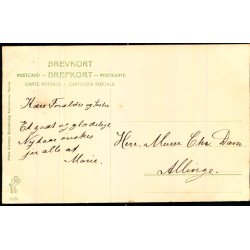 BREVKORT
POSTCARD — BREFKORT — POSTKARTE
CARTE POSTALE — CARTOLINA POSTALE
Kære Forældre og Søster
Et godt og glædeligt
Nytaar ønskes
for alle af
Marie.
Herr. Murer Chr. Dam.
Allinge.